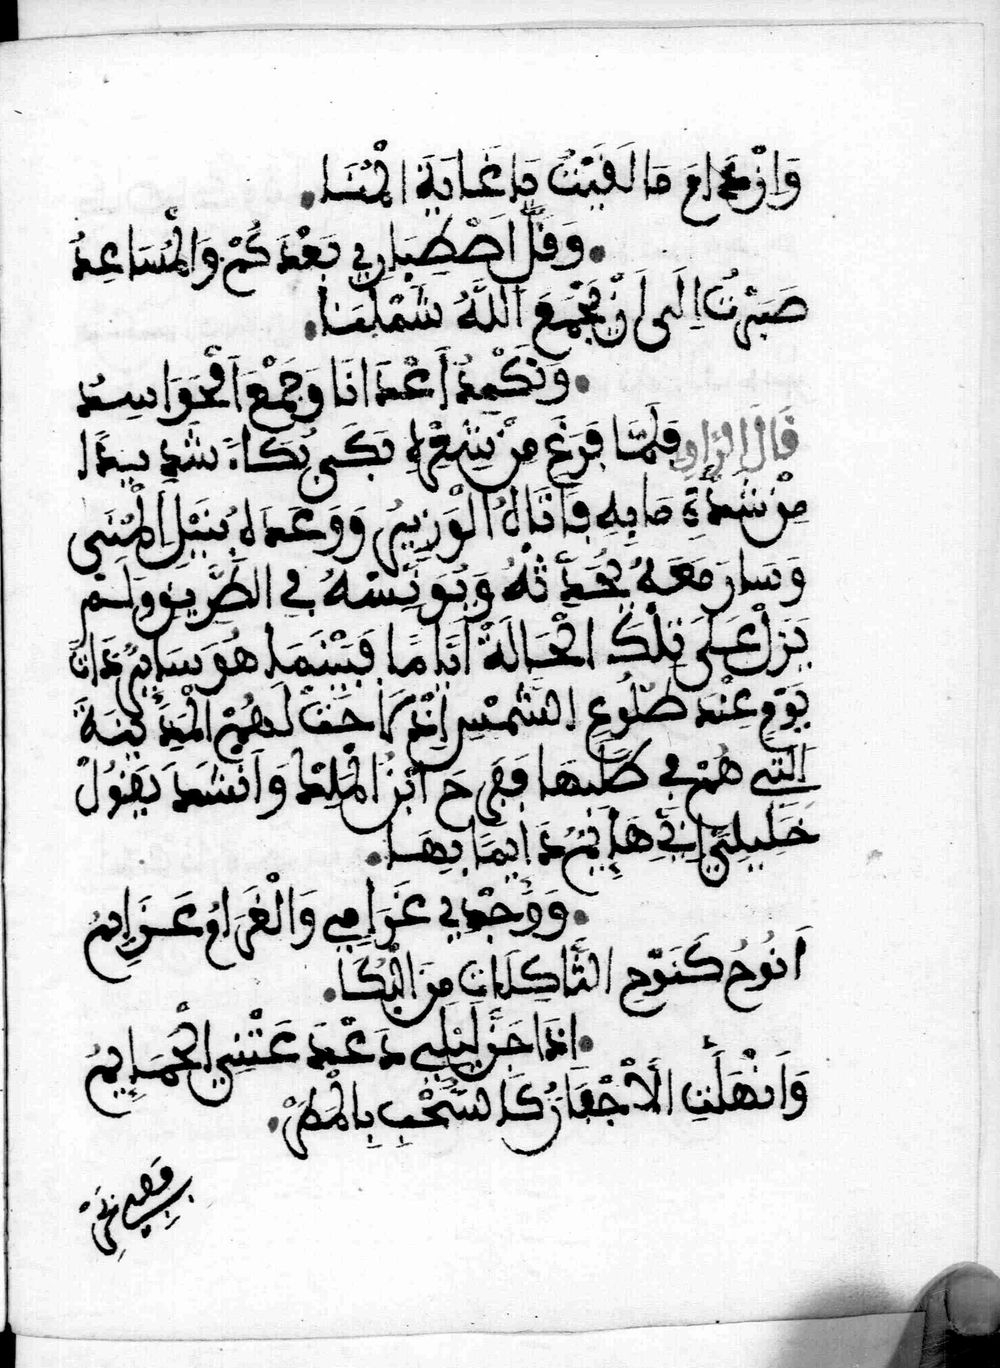 وَإِنْ دَامَ مَا لَقَيْتُ يَا غَايَةَ الْمُنَا
وَقَلَّ اصْطِبَارِي بَعْدَكُمْ وَالْمُسَاعِدُ
صَبَرْتُ إِلَى أَنْ يَجْمَعَ اللَّهُ شَمْلَنَا
وَنَكْمِدُ أَعْدَانَا وَجَمْعَ الْحَوَاسِدُ
قَالَ الرَّاوِي فَلَمَّا فَرَغَ مِنْ شِعْرِهِ بَكَى بُكَاءً شَدِيدًا
مِنْ شِدَّةِ مَا بِهِ فَأَتَاهُ الْوَزِيرُ وَوَعَدَهُ بِنَيْلِ الْمُنَى
وَسَارَ مَعَهُ يُحَدِّثُهُ وَيُوَنِّسْهُ فِي الطَّرِيقِ وَلَمْ
يَزَلْ عَلَى تِلْكَ الْحَالَةْ أَيَّامًا فَبَيْنَمَا هُوَ سَائِرٌ ذَاتَ
يَوْمٍ عِنْدَ طُلُوعِ الشَّمْسِ إِذْ لَاحَتْ لَهُمْ الْمَدِينَةَ
الَّتِي هُمْ فِي طَلَبِهَا فَفَرِحَ ابْنُ الْمَلِكْ وَأَنْشَدَ يَقُولُ
خَلِيلَيَّ إِنِّي هَائِمٌ دَايِمًا بِهَا
وَوَجْدِي غَرَامِي وَالْغَرَامُ عَزَايِمُ
أَنُوحُ كَنَوْحِ الثَّاكِلَاتِ مِنَ الْبُكَا
إِذَا جَنَّ لَيْلِي دَعْدَعَتْنِي الْحَمَايِمُ
وَانْهَلَّتِ الْأَجْفَانُ كَالسُّحْبِ بِالْمَطَرْ